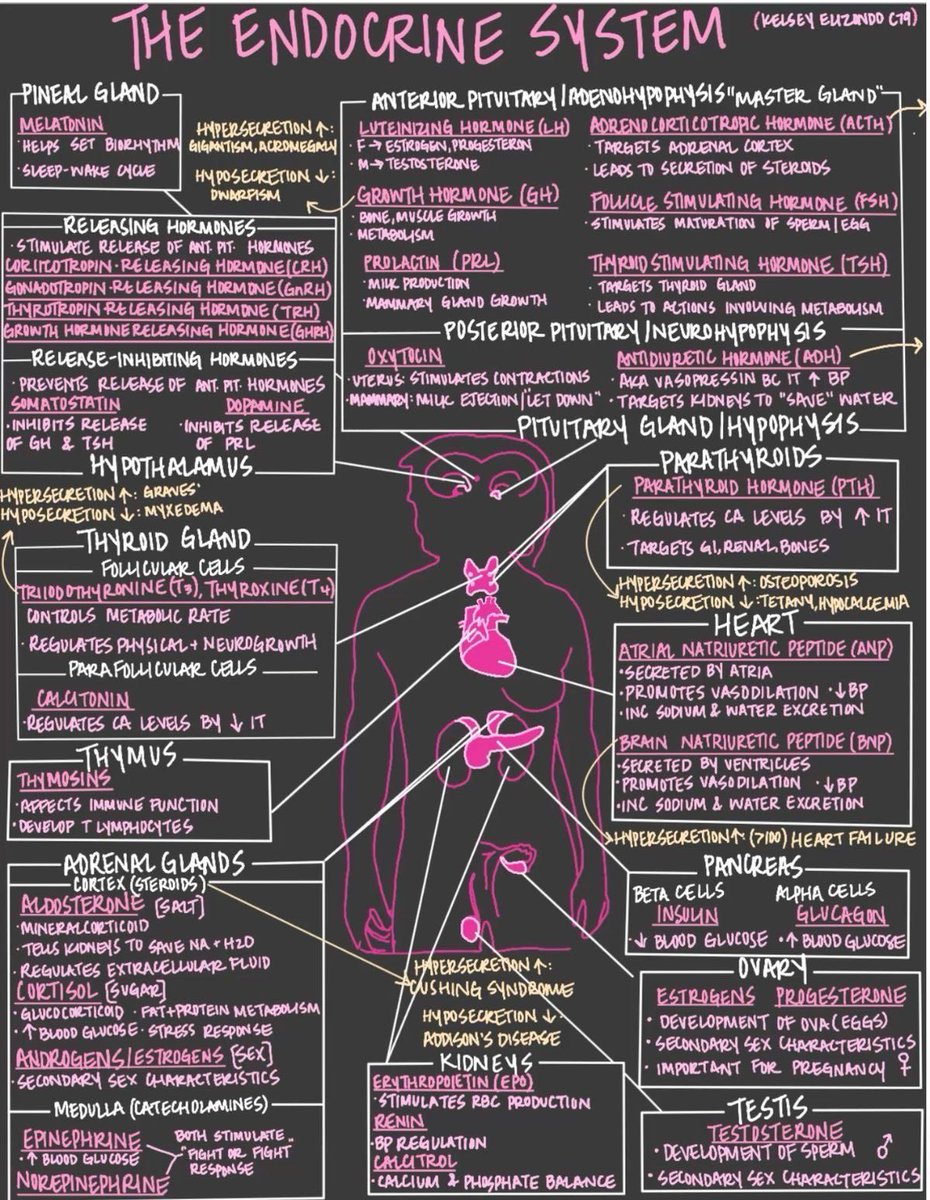 THE ENDOCRINE SYSTEM
(KELSEY ELIZONDO C79)
PINEAL GLAND
MELATONIN
• HELPS SET BIORHYTHM
• SLEEP-WAKE CYCLE
HYPERSECRETION ↑:
GIGANTISM, ACROMEGALY
HYPOSECRETION ↓:
DWARFISM
ANTERIOR PITUITARY/ADENOHYPOPHYSIS "MASTER GLAND"
LUTEINIZING HORMONE (LH)
F → ESTROGEN, PROGESTERON
M → TESTOSTERONE
GROWTH HORMONE (GH)
• BONE, MUSCLE GROWTH
• METABOLISM
PROLACTIN (PRL)
• MILK PRODUCTION
• MAMMARY GLAND GROWTH
ADRENOCORTICOTROPIC HORMONE (ACTH)
• TARGETS ADRENAL CORTEX
• LEADS TO SECRETION OF STEROIDS
FOLLICLE STIMULATING HORMONE (FSH)
• STIMULATES MATURATION OF SPERM/EGG
THYROID STIMULATING HORMONE (TSH)
• TARGETS THYROID GLAND
• LEADS TO ACTIONS INVOLVING METABOLISM
POSTERIOR PITUITARY/NEUROHYPOPHYSIS
OXYTOCIN
• UTERUS: STIMULATES CONTRACTIONS
• MAMMARY: MILK EJECTION/"LET DOWN"
ANTIDIURETIC HORMONE (ADH)
• AKA VASOPRESSIN BC IT ↑ BP
• TARGETS KIDNEYS TO "SAVE" WATER
PITUITARY GLAND/HYPOPHYSIS
RELEASING HORMONES
• STIMULATE RELEASE OF ANT. PIT. HORMONES
CORTICOTROPIN-RELEASING HORMONE (CRH)
GONADOTROPIN-RELEASING HORMONE (GnRH)
THYROTROPIN-RELEASING HORMONE (TRH)
GROWTH HORMONE RELEASING HORMONE (GHRH)
RELEASE-INHIBITING HORMONES
• PREVENTS RELEASE OF ANT. PIT. HORMONES
SOMATOSTATIN
• INHIBITS RELEASE
OF GH & TSH
DOPAMINE
• INHIBITS RELEASE
OF PRL
HYPOTHALAMUS
HYPERSECRETION ↑: GRAVES'
HYPOSECRETION ↓: MYXEDEMA
THYROID GLAND
FOLLICULAR CELLS
TRIIODOTHYRONINE (T3), THYROXINE (T4)
CONTROLS METABOLIC RATE
• REGULATES PHYSICAL + NEUROGROWTH
PARAFOLLICULAR CELLS
CALCITONIN
• REGULATES CA LEVELS BY ↓ IT
THYMUS
THYMOSINS
• AFFECTS IMMUNE FUNCTION
• DEVELOP T LYMPHOCYTES
PARATHYROIDS
PARATHYROID HORMONE (PTH)
• REGULATES CA LEVELS BY ↑ IT
• TARGETS GI, RENAL, BONES
HYPERSECRETION ↑: OSTEOPOROSIS
HYPOSECRETION ↓: TETANY, HYPOCALCEMIA
HEART
ATRIAL NATRIURETIC PEPTIDE (ANP)
• SECRETED BY ATRIA
• PROMOTES VASODILATION • ↓BP
• INC SODIUM & WATER EXCRETION
BRAIN NATRIURETIC PEPTIDE (BNP)
• SECRETED BY VENTRICLES
• PROMOTES VASODILATION ↓BP
• INC SODIUM & WATER EXCRETION
HYPERSECRETION ↑: (>100) HEART FAILURE
ADRENAL GLANDS
CORTEX (STEROIDS)
ALDOSTERONE [SALT]
• MINERALCORTICOID
• TELLS KIDNEYS TO SAVE NA + H2O
• REGULATES EXTRACELLULAR FLUID
CORTISOL [SUGAR]
• GLUCOCORTICOID • FAT+PROTEIN METABOLISM
• ↑ BLOOD GLUCOSE • STRESS RESPONSE
ANDROGENS/ESTROGENS [SEX]
• SECONDARY SEX CHARACTERISTICS
MEDULLA (CATECHOLAMINES)
EPINEPHRINE
• ↑ BLOOD GLUCOSE
NOREPINEPHRINE
BOTH STIMULATE
"FIGHT OR FIGHT
RESPONSE
HYPERSECRETION ↑:
CUSHING SYNDROME
HYPOSECRETION ↓:
ADDISON'S DISEASE
KIDNEYS
ERYTHROPOIETIN (EPO)
• STIMULATES RBC PRODUCTION
RENIN
• BP REGULATION
CALCITROL
• CALCIUM & PHOSPHATE BALANCE
PANCREAS
BETA CELLS
INSULIN
• ↓ BLOOD GLUCOSE
ALPHA CELLS
GLUCAGON
• ↑ BLOOD GLUCOSE
OVARY
ESTROGENS PROGESTERONE
• DEVELOPMENT OF OVA (EGGS)
• SECONDARY SEX CHARACTERISTICS
• IMPORTANT FOR PREGNANCY ♀
TESTIS
TESTOSTERONE
• DEVELOPMENT OF SPERM ♂
• SECONDARY SEX CHARACTERISTICS